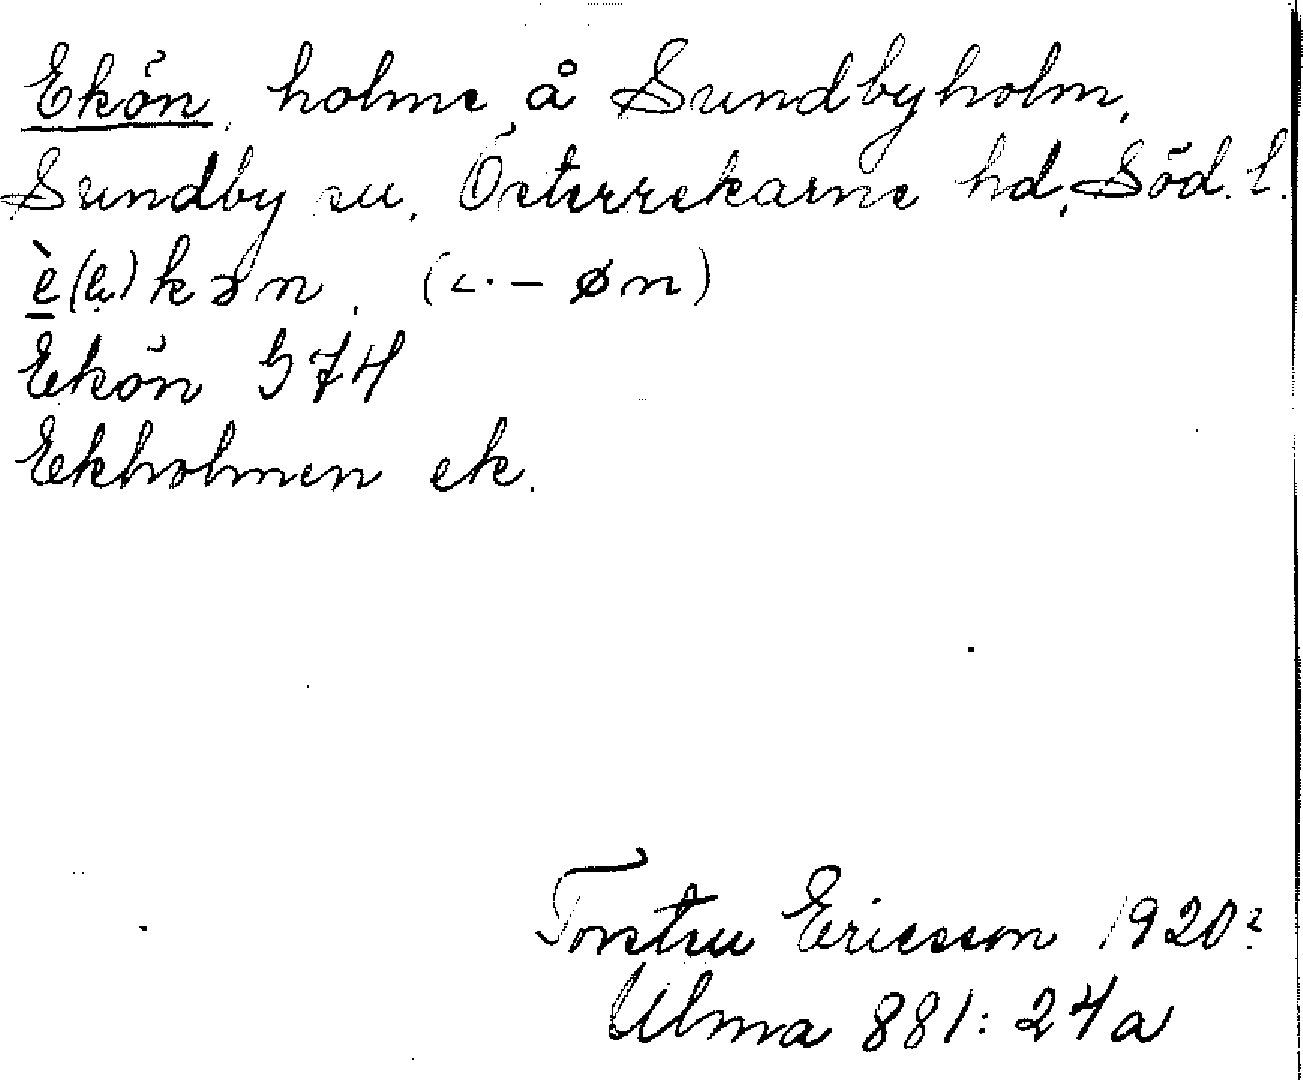 Ekön, holme å Sundbyholm,
Sundby sn, Österrekarne hd, Söd. l.
è(e̥)kən. (<·– øn)
Ekön G74
Ekholmen ek.
Torsten Ericsson 1920?
Ulma 881:24a